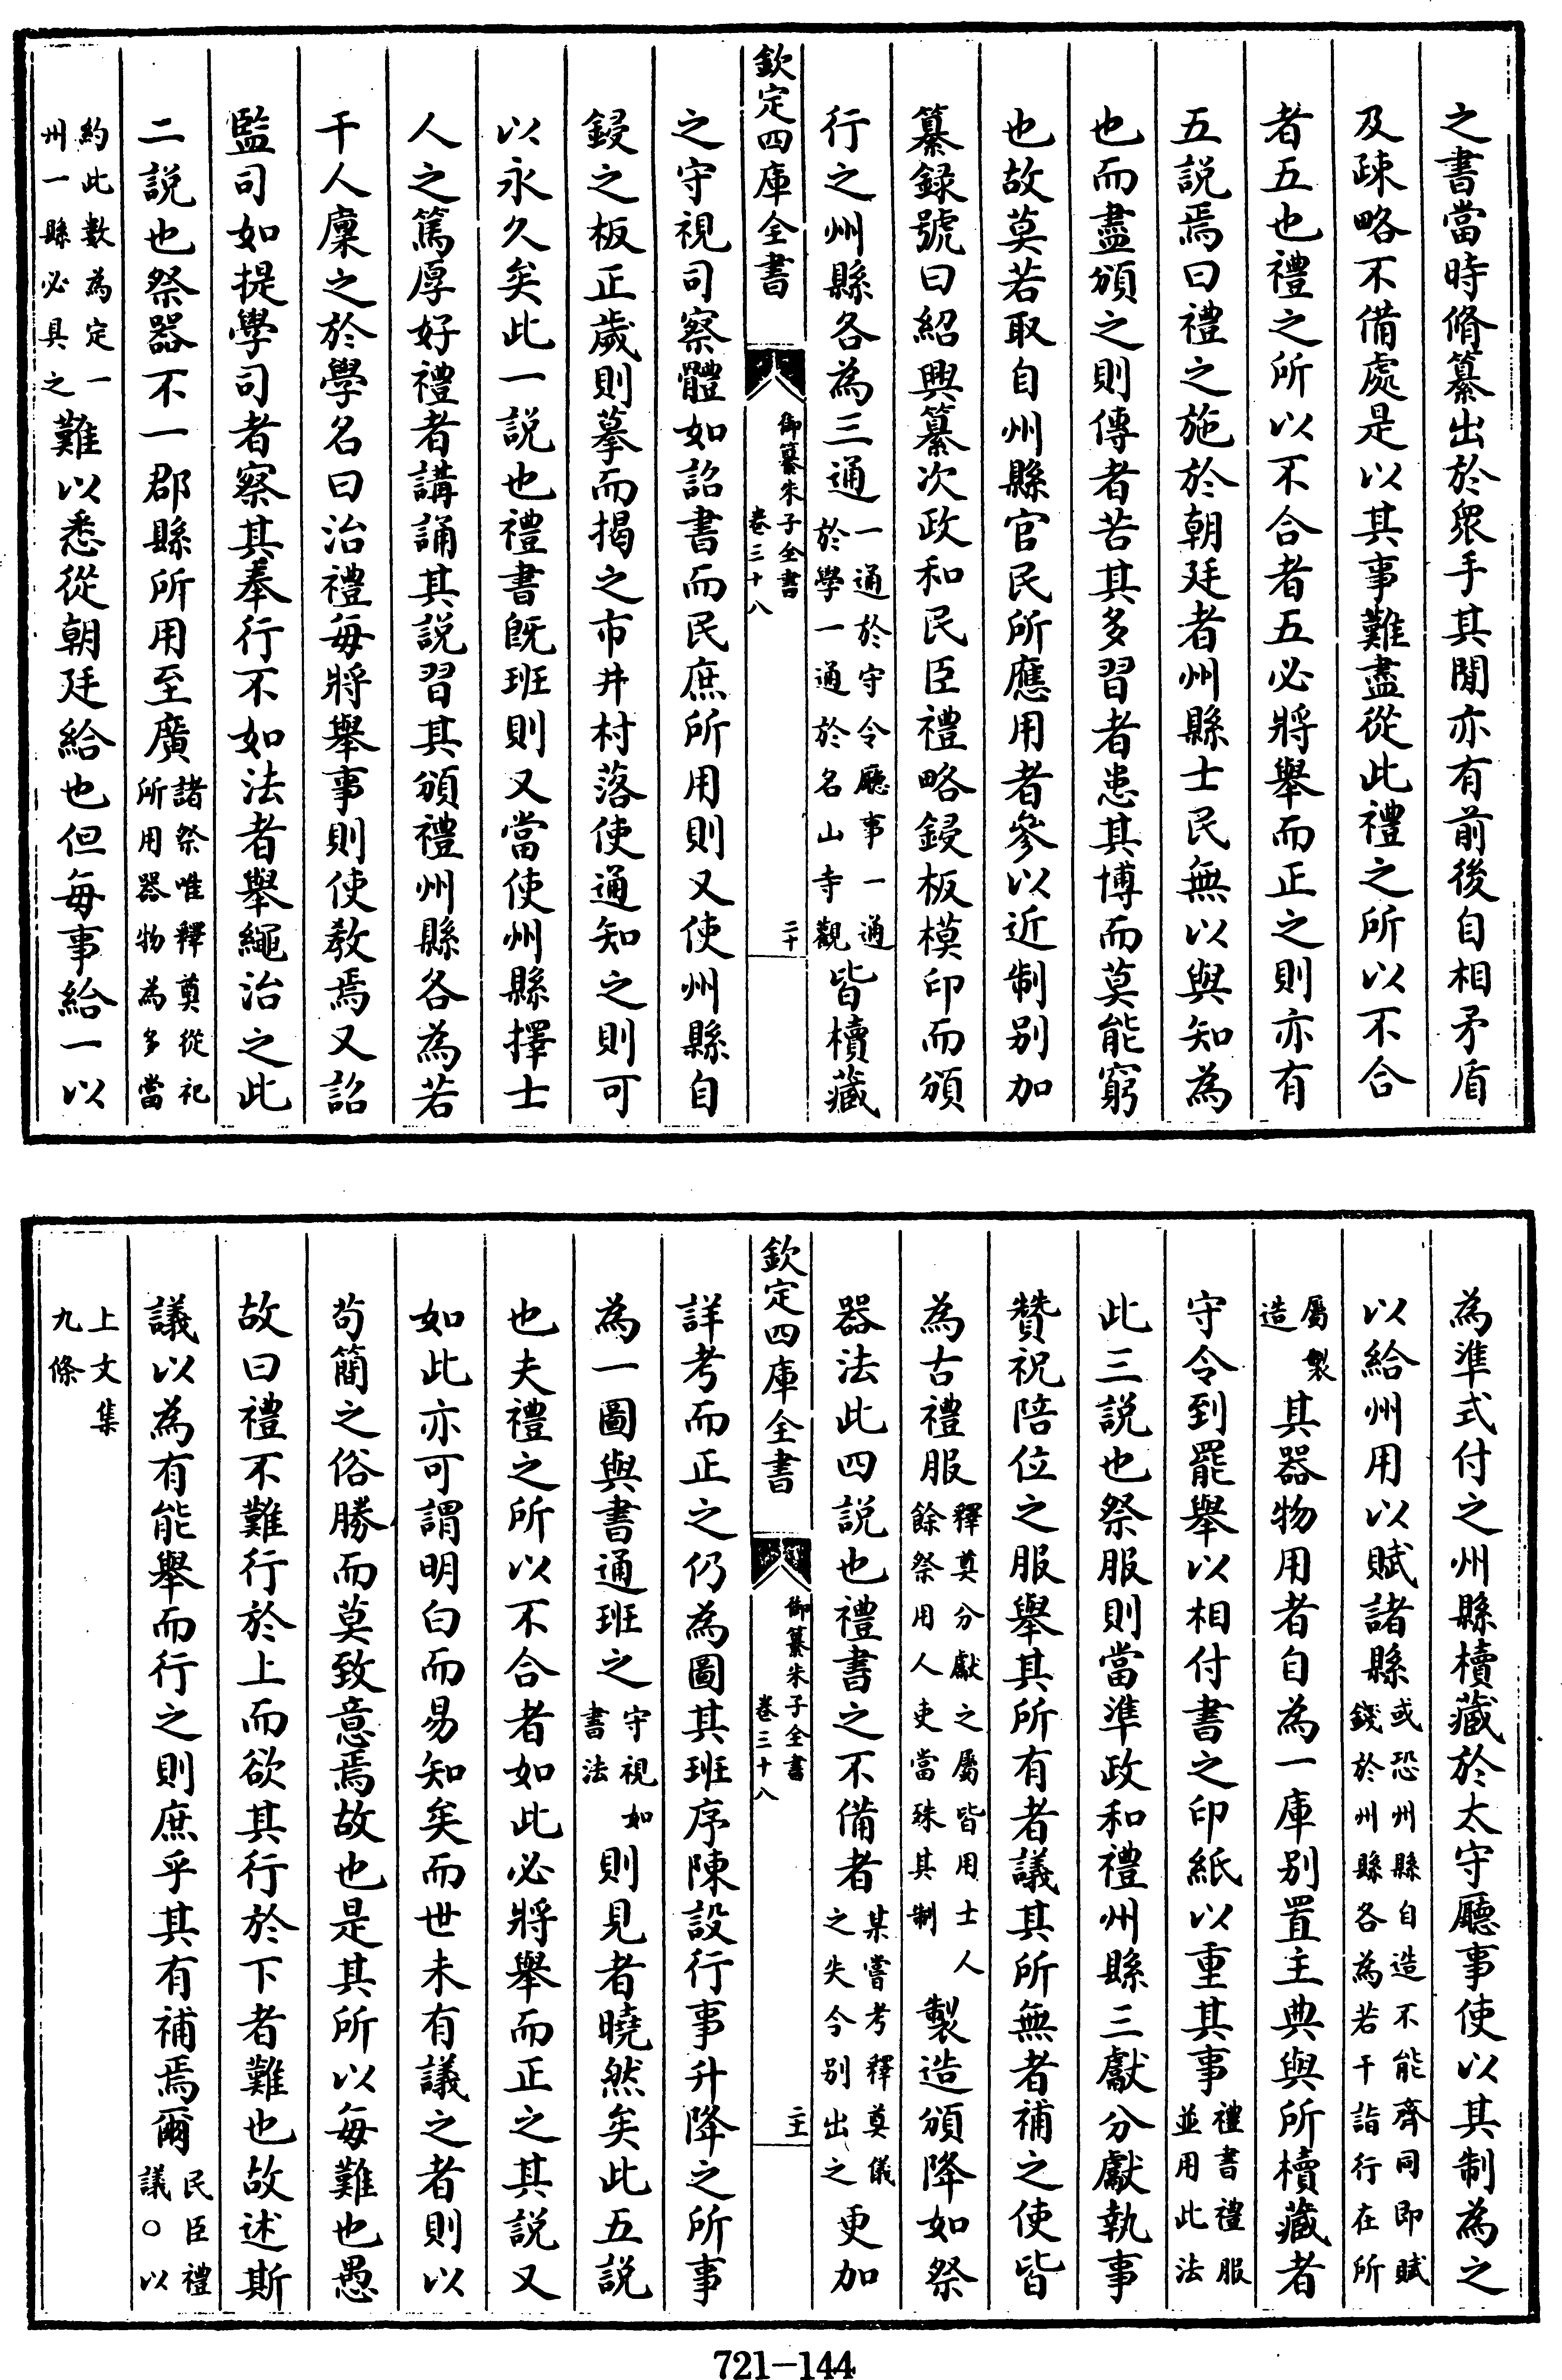 之書當時脩纂出於衆手其間亦有前後自相矛盾
及疎略不備處是以其事難盡從此禮之所以不合
者五也禮之所以不合者五必將舉而正之則亦有
五説焉曰禮之施於朝廷者州縣士民無以與知為
也而盡頒之則傳者苦其多習者患其博而莫能窮
也故莫若取自州縣官民所應用者參以近制别加
纂錄號曰紹興纂次政和民臣禮略鋟板模印而頒
行之州縣各為三通一通於守令廳事一通於學一通於名山寺觀皆櫝藏
欽定四庫全書
御纂朱子全書
卷三十八
二十
之守視司察體如詔書而民庶所用則又使州縣自
鋟之板正歲則摹而揭之市井村落使通知之則可
以永久矣此一説也禮書既班則又當使州縣擇士
人之篤厚好禮者講誦其説習其頒禮州縣各為若
干人廩之於學名曰治禮每將舉事則使教焉又詔
監司如提學司者察其奉行不如法者舉繩治之此
二説也祭器不一郡縣所用至廣諸祭唯釋奠從祀所用器物為多當
約此數為定一州一縣必具之難以悉從朝廷給也但每事給一以
為準式付之州縣櫝藏於太守廳事使以其制為之
以給州用以賦諸縣或恐州縣自造不能齊同即賦錢於州縣各為若干詣行在所
屬製造其器物用者自為一庫别置主典與所櫝藏者
守令到罷舉以相付書之印紙以重其事禮書禮服並用此法
此三説也祭服則當準政和禮州縣三獻分獻執事
贊祝陪位之服舉其所有者議其所無者補之使皆
為古禮服釋奠分獻之屬皆用士人餘祭用人吏當殊其制製造頒降如祭
器法此四説也禮書之不備者某嘗考釋奠儀之失今别出之更加
欽定四庫全書
御纂朱子全書
卷三十八
二十一
詳考而正之仍為圖其班序陳設行事升降之所事
為一圖與書通班之守視如書法則見者曉然矣此五説
也夫禮之所以不合者如此必將舉而正之其説又
如此亦可謂明白而易知矣而世未有議之者則以
苟簡之俗勝而莫致意焉故也是其所以每難也愚
故曰禮不難行於上而欲其行於下者難也故述斯
議以為有能舉而行之則庶乎其有補焉爾民臣禮議〇以
上文集九條
721—144